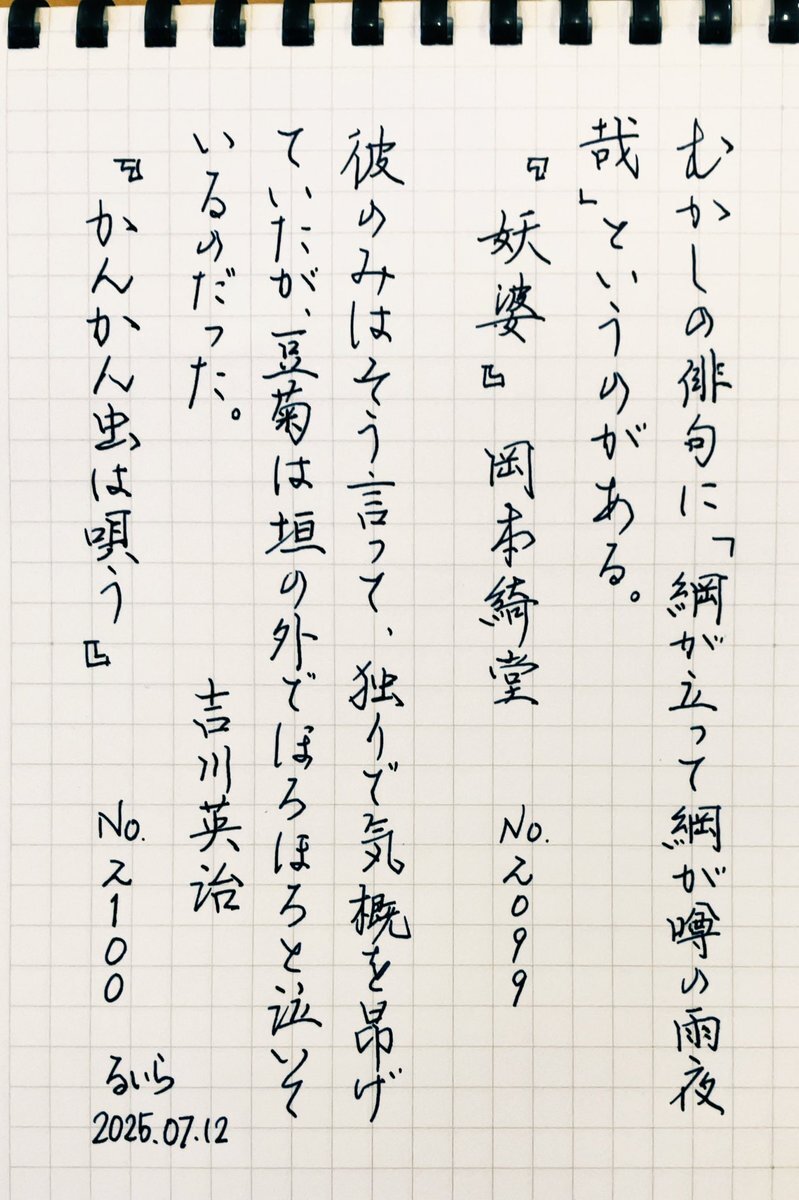 むかしの俳句に「綱が立って綱が噂の雨夜
哉」というのがある。
『妖婆』 岡本綺堂 No.2099
彼のみはそう言って、独りで気概を昂げ
ていたが、豆菊は垣の外でほろほろと泣いて
いるのだった。
吉川英治
『かんかん虫は唄う』 No.2100
るいら
2025.07.12